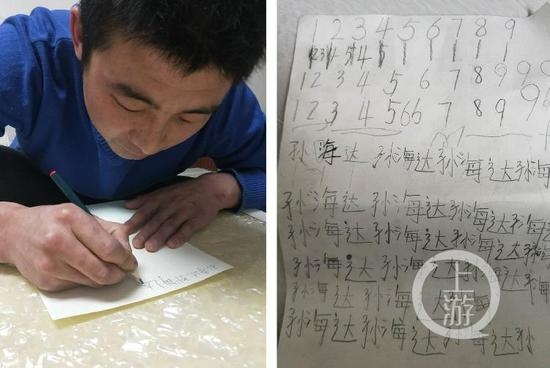 1 2 3 4 5 6 7 8 9
1 2 3 4 5 6 7 8 9 9 9
1 2 3 4 5 6 6 7 8 9 9
孙 海 达 孙海达孙海达孙海
孙海达孙海达孙海达孙海
孙海达孙海达孙海达孙海
孙海达孙海达孙海达孙海
孙海达孙海达孙海
孙海达孙海达孙海达孙
上游